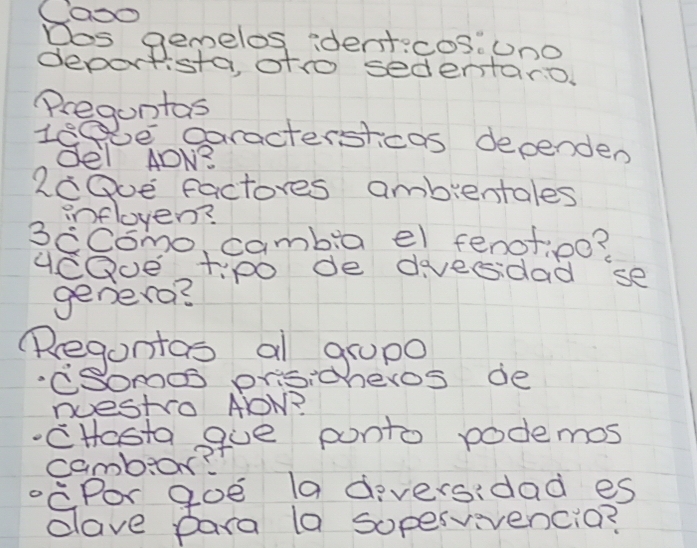 Caso
Dos gemelos identicos: uno
deportista, otro sedentario.
Preguntas
1¿Qué caracteristicas dependen
del ADN?
2¿Qué factores ambientales
influyen?
3¿Cómo cambia el fenotipo?
4¿Qué tipo de diversidad se
genera?
Preguntas al grupo
·¿Somos prisioneros de
nuestro ADN?
·¿Hasta que punto podemos
cambiar?
·¿Por qué la diversidad es
clave para la supervivencia?